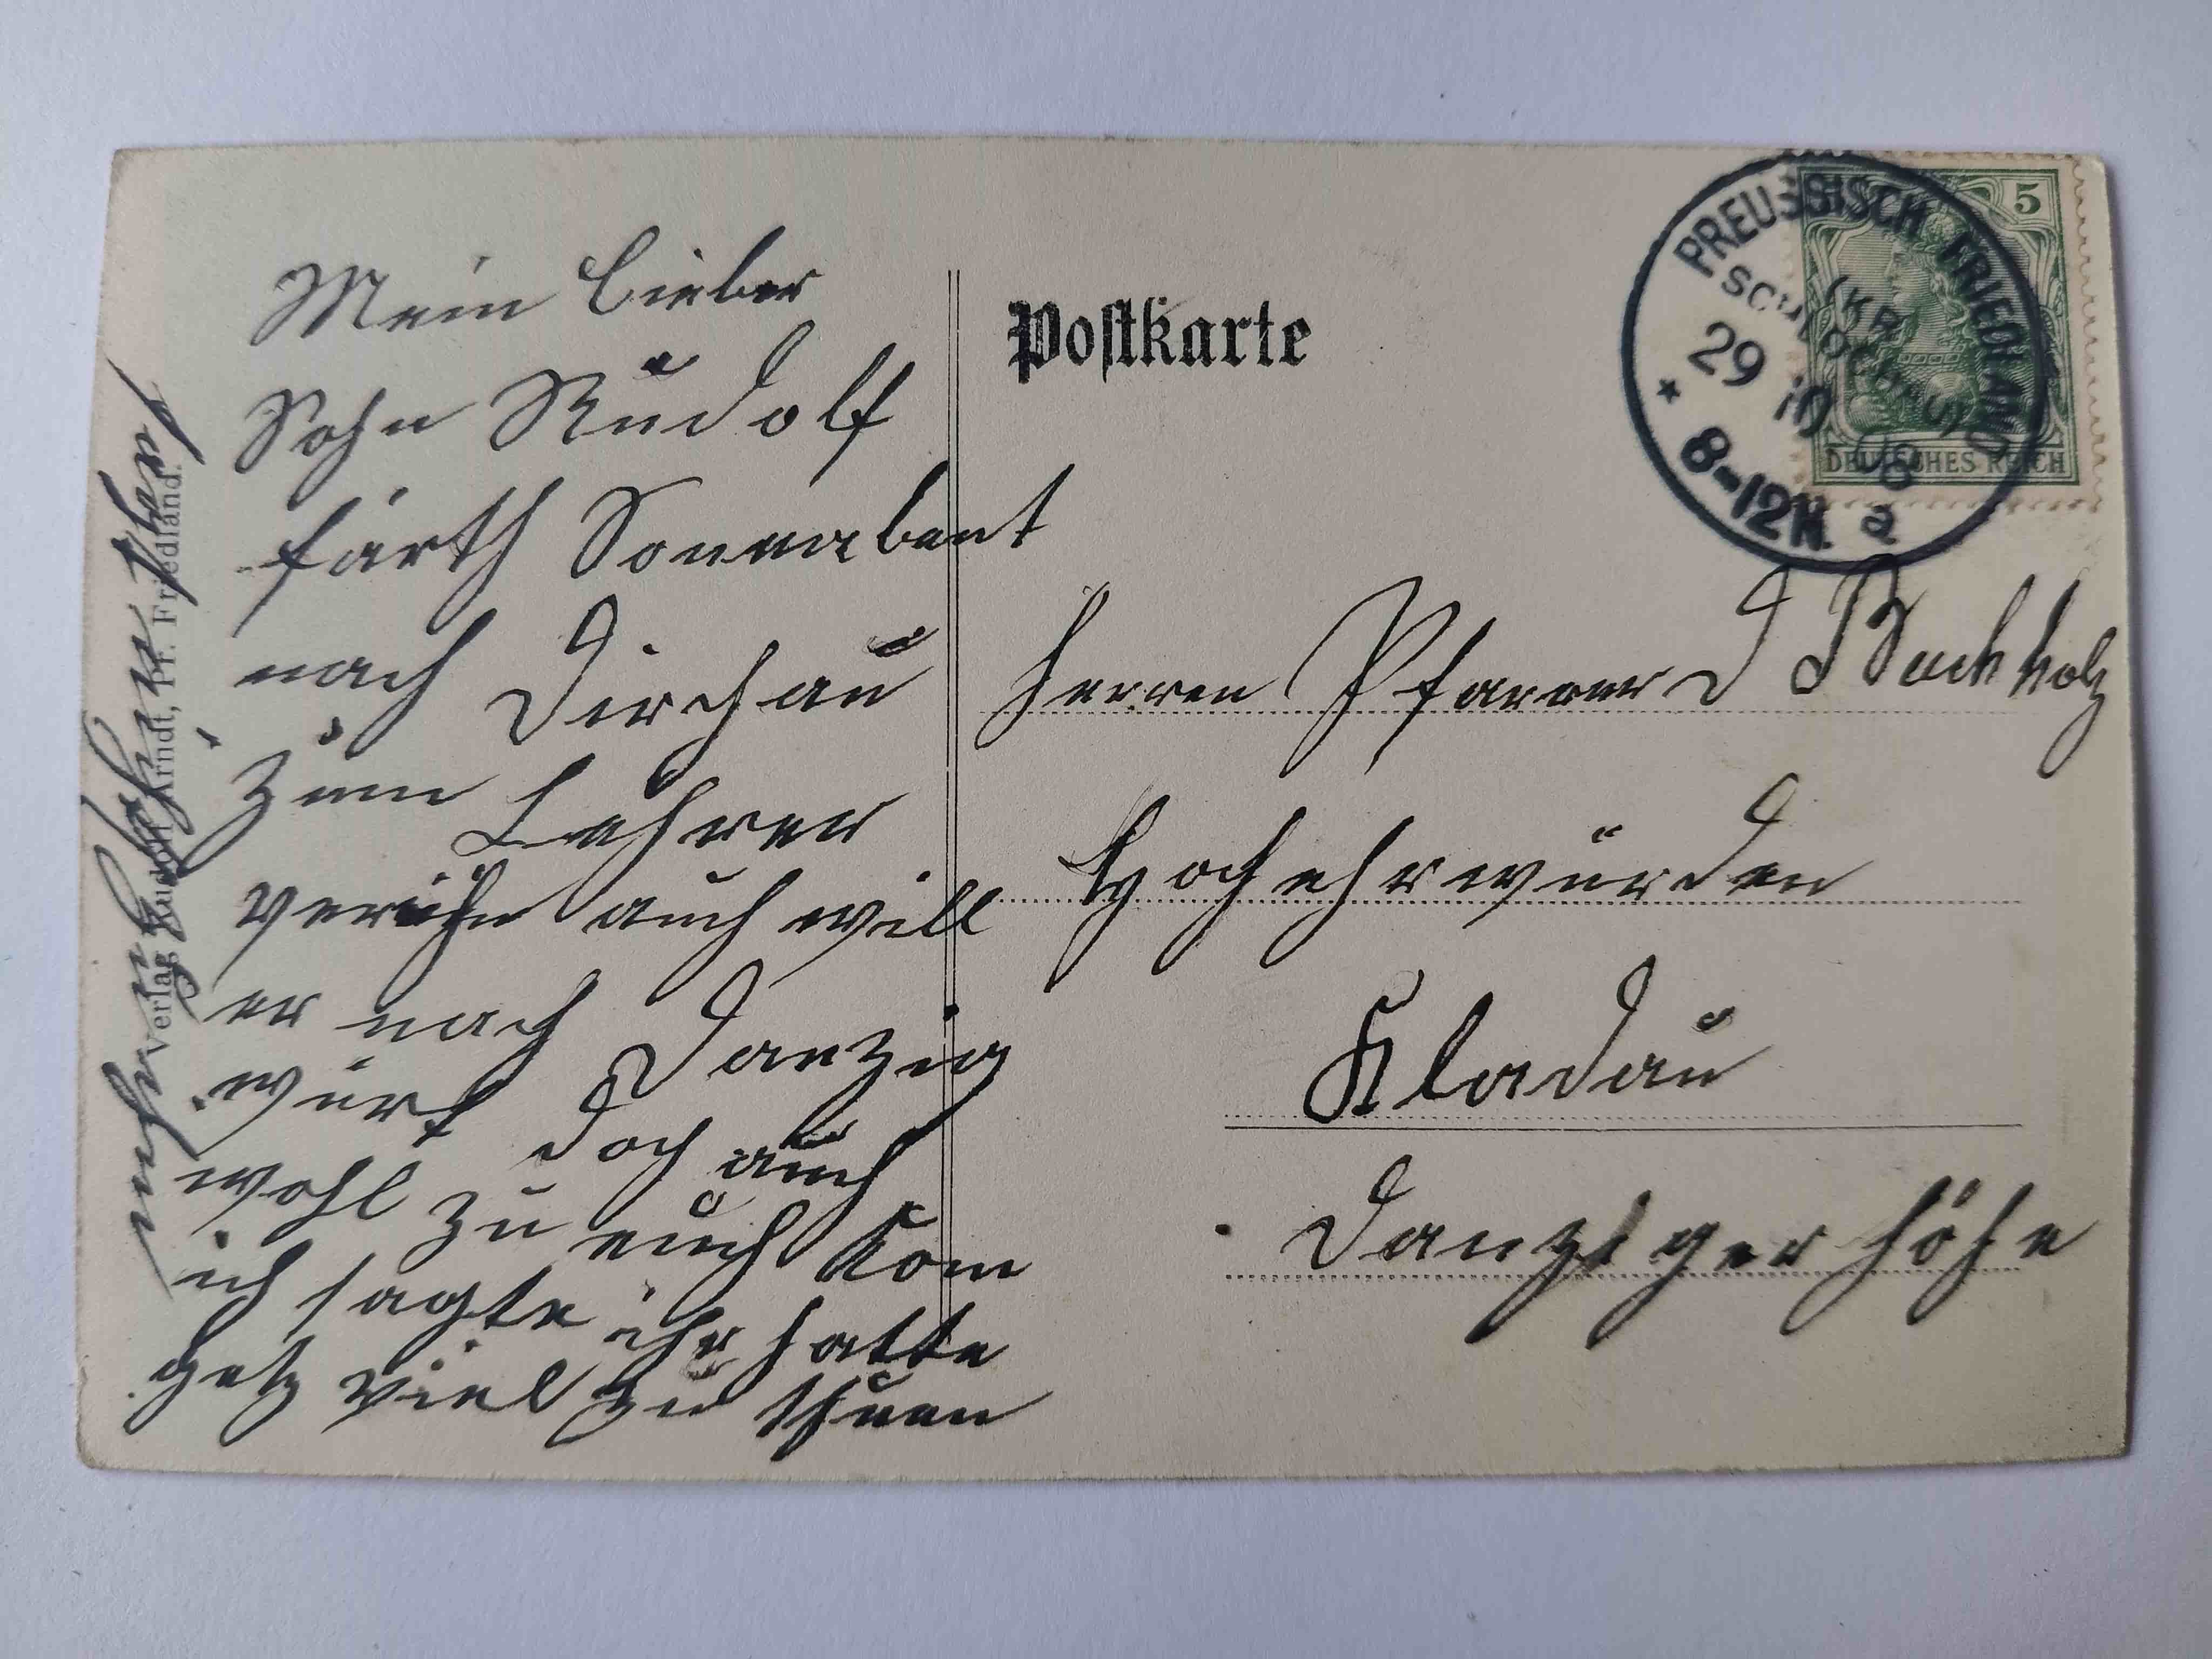 Mein lieber
Sohn Rudolf
färth Sonnabent
nach Dirschau
zum Lehrer
verein auch will
er nach Danzig
würt doch auch
wohl zu euch kom
ich sagte ihr hatte
getz viel zu thuen
Verlag Rudolf Arndt, Pr. Friedland.
Postkarte
PREUSSISCH FRIEDLAND
(KR. SCHLOCHAU)
29 10
8-12N. a
5
DEUTSCHES REICH
Herren Pfarrer D Buchholz
Hochehrwürden
Kladau
Danziger Höhe